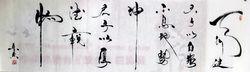 天行健
君子以自強
不息地勢
坤
君子以厚
德載
物